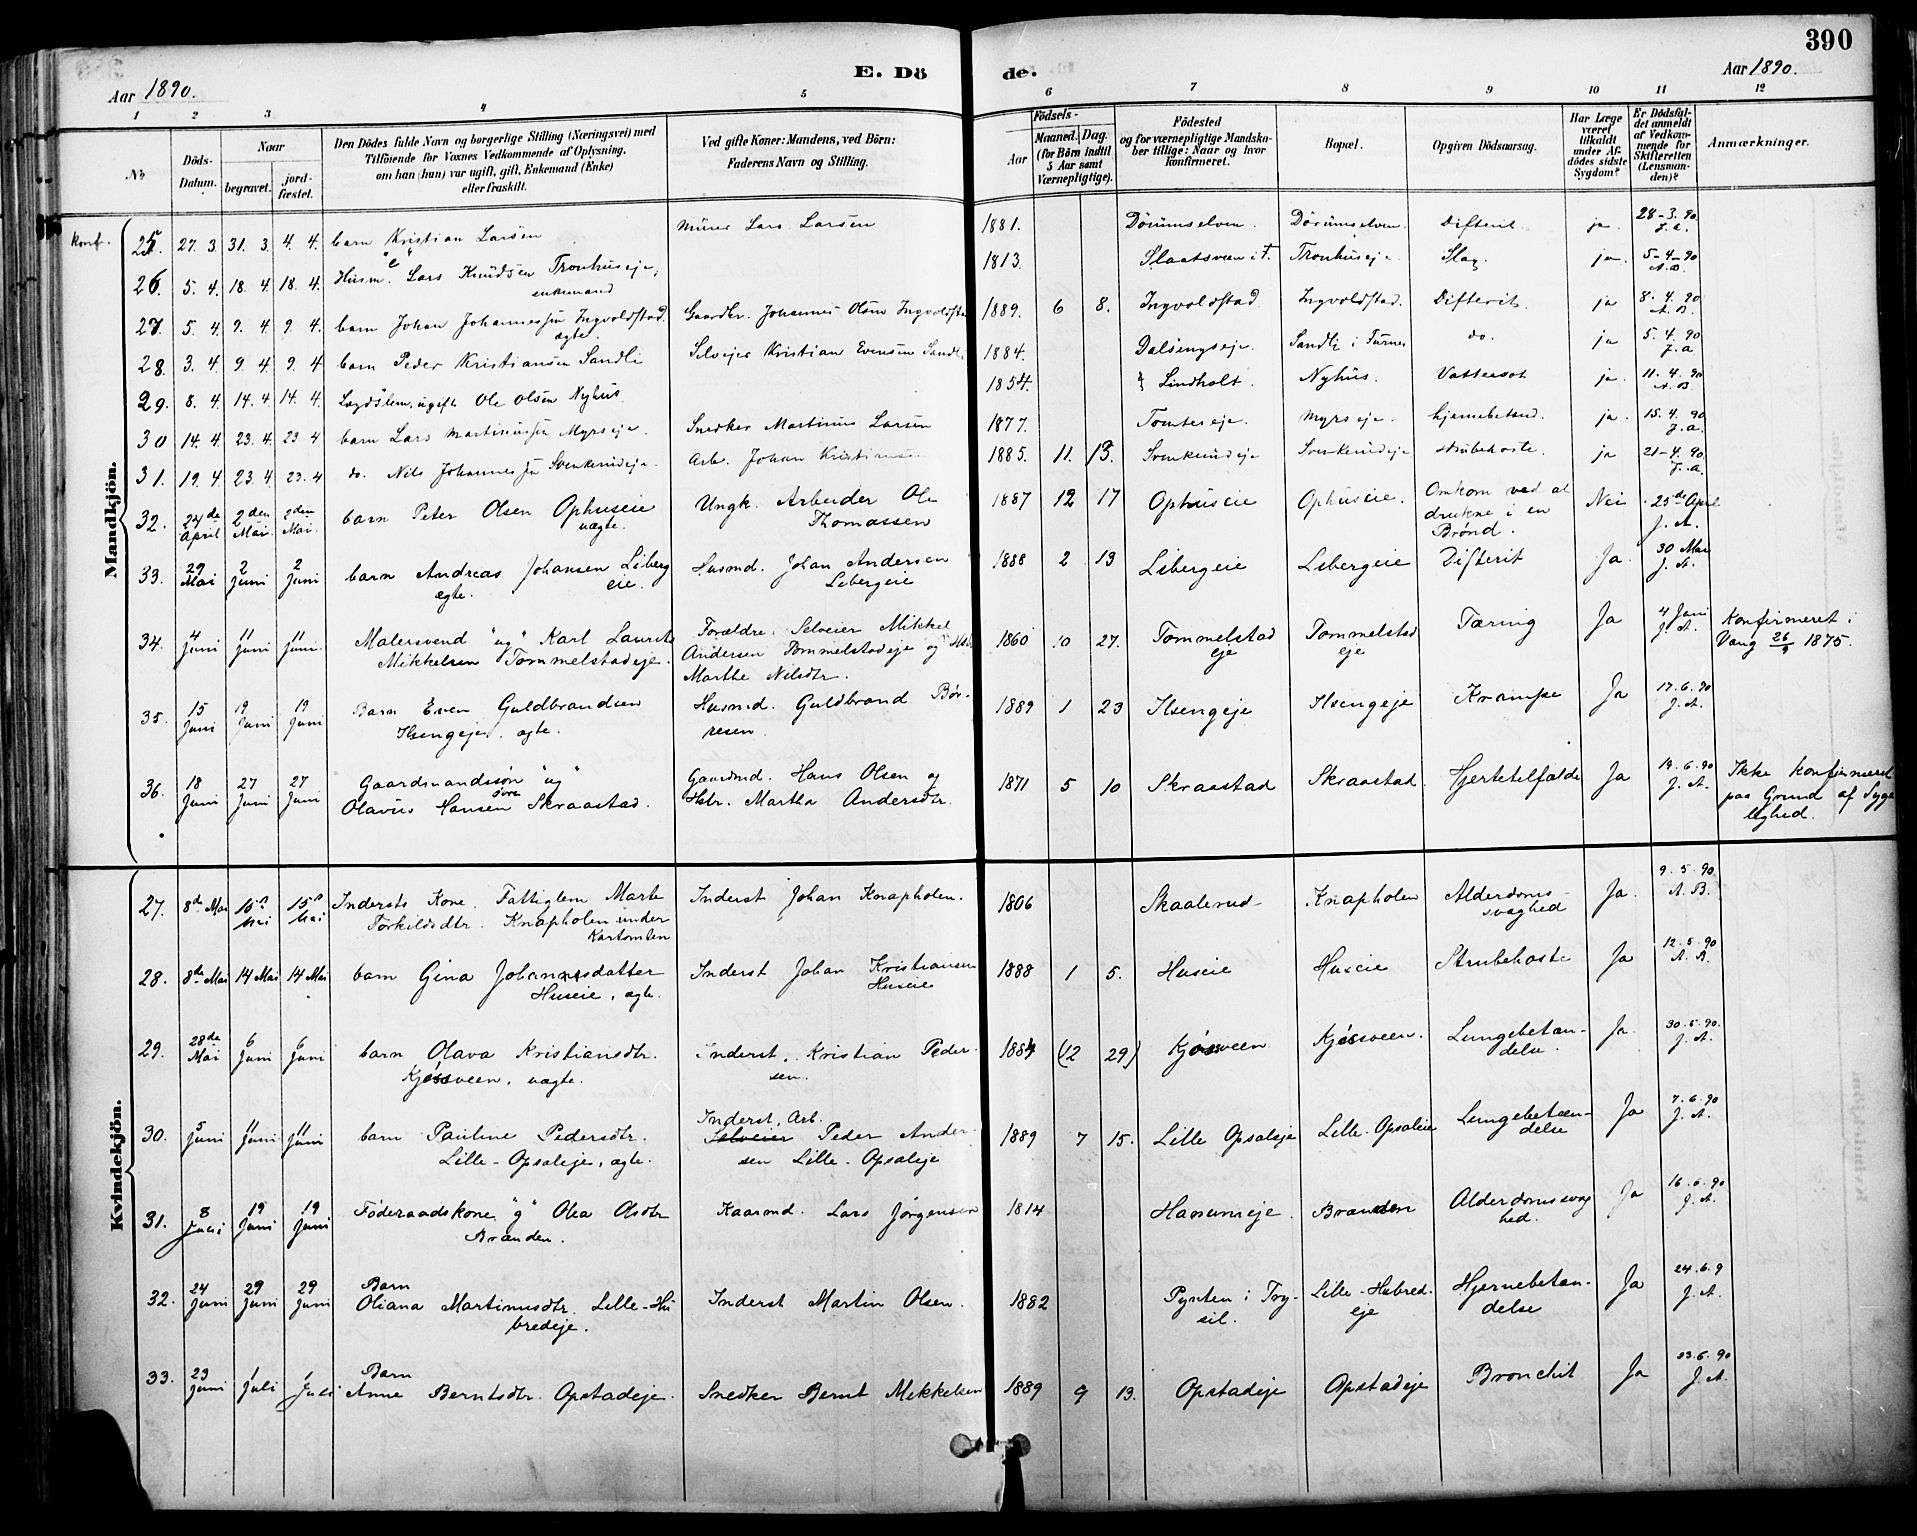 390
E. Dö de.
Aar 1890.
Aar 1890.
1 2 3 4 5 6 7 8 9 10 11 12
No
Döds-Datum.
Naar
begravet.
jordfæstet.
Den Dödes fulde Navn og borgerlige Stilling (Næringsvei) med
Tilföiende for Voxnes Vedkommende af Oplysning,
om han (hun) var ugift, gift, Enkemand (Enke)
eller fraskilt.
Ved gifte Koner: Mandens, ved Börn:
Faderens Navn og Stilling.
Födsels-
Aar
Maaned. Dag.
(for Börn indtil
5 Aar samt
Værnepligtige).
Födested
og for værnepligtige Mandskaber tillige: Naar og hvor
konfirmeret.
Bopæl.
Opgiven Dödsaarsag.
Har Læge
været
tilkaldt
under Afdödes sidste
Sygdom?
Er Dödsfaldet anmeldt
af Vedkommende for
Skifteretten
(Lensmanden)?
Anmærkninger.
Mandkjön.
konf.
25. 27. 3 31. 3 4. 4. barn Kristian Larsen Murer Lars Larsen 1881. Dørumselven. Dørumselven. Difterit ja. 28-3. 90. J. A.
26. 5. 4. 18. 4. 18. 4. Husm. "e" Lars Knudsen Tronhuseje, enkemand 1813. Slaatsveen i F. Tronhuseje. Slag. ja. 5-4-90 A. B.
27. 5. 4. 9. 4 9. 4 barn Johan Johannessen Ingvoldstad. ægte. Gaardbr. Johannes Olsen Ingvoldsta 1889. 6 8. Ingvoldstad Ingvoldstad. Difterit. ja 8. 4. 90 A. B.
28. 3. 4 9. 4 9. 4 barn Peder Kristiansen Sandli Selvejer Kristian Evensen Sandli 1884. Dalsengseje. Sandli i Furnes do. ja 5. 4. 90 J. A
29. 8. 4 14. 4. 14. 4. Lægdslem, ugift Ole Olsen Nyhus. 1854. Lindholt. Nyhus. Vattersot ja. 11. 4. 90 A. B.
30 14. 4. 23. 4 23 4 barn Lars Martinussen Myrseje. Snedker Martinus Larsen 1877. Tomterseje. Myrseje. hjernebetænd. ja. 15. 4. 90 J. A.
31. 19. 4 23. 4 23. 4 do. Nils Johannessen Svenkerudeje. Arb. Johan Kristiansen 1885. 11. 13. Svenkerudeje Svenkerudeje strubehoste. ja 21-4. 90. J. A.
32. 24de April 2den Mai. 2den Mai. barn Peter Olsen Ophuseie uægte. Ungk. Arbeider Ole Thomassen 1887 12 17 Ophuseie Ophuseie. Omkom ved at drukne i en Brønd. Nei 25de April J. A.
33. 29 Mai 2 Juni 2 Juni barn Andreas Johansen Libergeie. ægte. Husmd. Johan Andersen Libergeie 1888 2 13 Libergeie Libergeie Difterit Ja. 30 Mai J. A.
34. 4 Juni 11 Juni 11 Juni. Malersvend "ug" Karl Laurits Mikkelsen Tommelstadeje. Forældre: Selveier Mikkel Andersen Tommelstadeje og Marthe Nilsdtr. 1860 10 27. Tommelstad eje Tommelstad eje Tæring Ja 4 Juni J. A. Konfirmeret i Vang 26/9 1875.
35. 15 Juni 19 Juni 19 Juni Barn Even Guldbrandsen Ilsengeje, ægte. Husmd. Guldbrand Børresen. 1889 1 23 Ilsengeje Ilsengeje Krampe Ja 17. 6. 90 J. A.
36. 18 Juni 27 Juni 27 Juni Gaardmandssøn "ug" Olavus Hansen øvre Skraastad. Gaardmd. Hans Olsen og Hstr. Martha Andersdtr. 1871 5 10 Skraastad Skraastad. Hjertetilfælde Ja 19. 6. 90 J. A. Ikke konfirmeret paa Grund af Sygelighed.
Kvindekjön.
27. 8de Mai 15de Mai 15de Mai Indersts Kone, Fattiglem Marte Torkildsdtr. Knapholen under Kartomten Inderst Johan Knapholen. 1806 Skaalerud Knapholen Alderdomssvaghed Ja. 9. 5. 90. A. B.
28. 8de Mai 14 Mai 14 Mai barn Gina Johannesdatter Huseie, ægte. Inderst Johan Kristiansen Huseie 1888 1 5. Huseie Huseie Strubehoste Ja 12. 5. 90 A. B.
29. 28de Mai 6 Juni 6 Juni barn Olava Kristiansdtr. Kjøsveen, uægte. Inderst. Kristian Pedersen. 1884 (12 29) Kjøsveen Kjøsveen. Lungebetændelse. Ja. 30. 5. 90. J. A.
30. 5 Juni 11 Juni 11 Juni barn Pauline Pedersdtr. Lille-Opsaleje, ægte. Inderst, Arb. Selveier Peder Andersen Lille-Opsaleje 1889 7 15. Lille Opsaleje Lille-Opsaleie Lungebetændelse Ja 7. 6. 90 J. A.
31. 8 Juni 19 Juni 19 Juni Føderaadskone "g" Olea Olsdtr Branden. Kaarmd. Lars Jørgensen 1814 Hanumeje. Branden Alderdomssvaghed. Ja 16. 6. 90 J. A.
32. 24 Juni 29 Juni 29 Juni Barn Oliana Martinusdtr. Lille-Hubredeje. Inderst Martin Olsen. 1882 Pynten i Trysil. Lille-Hubredeje Hjernebetændelse Ja 24. 6. 9 J. A.
33. 23 Juni 1 Juli 1 Juli Barn Anne Berntsdtr. Opstadeje. Snedker Bernt Mikkelsen 1889 9 13. Opstadeje Opstadeje Bronchit Ja 23. 6. 90 J. A.